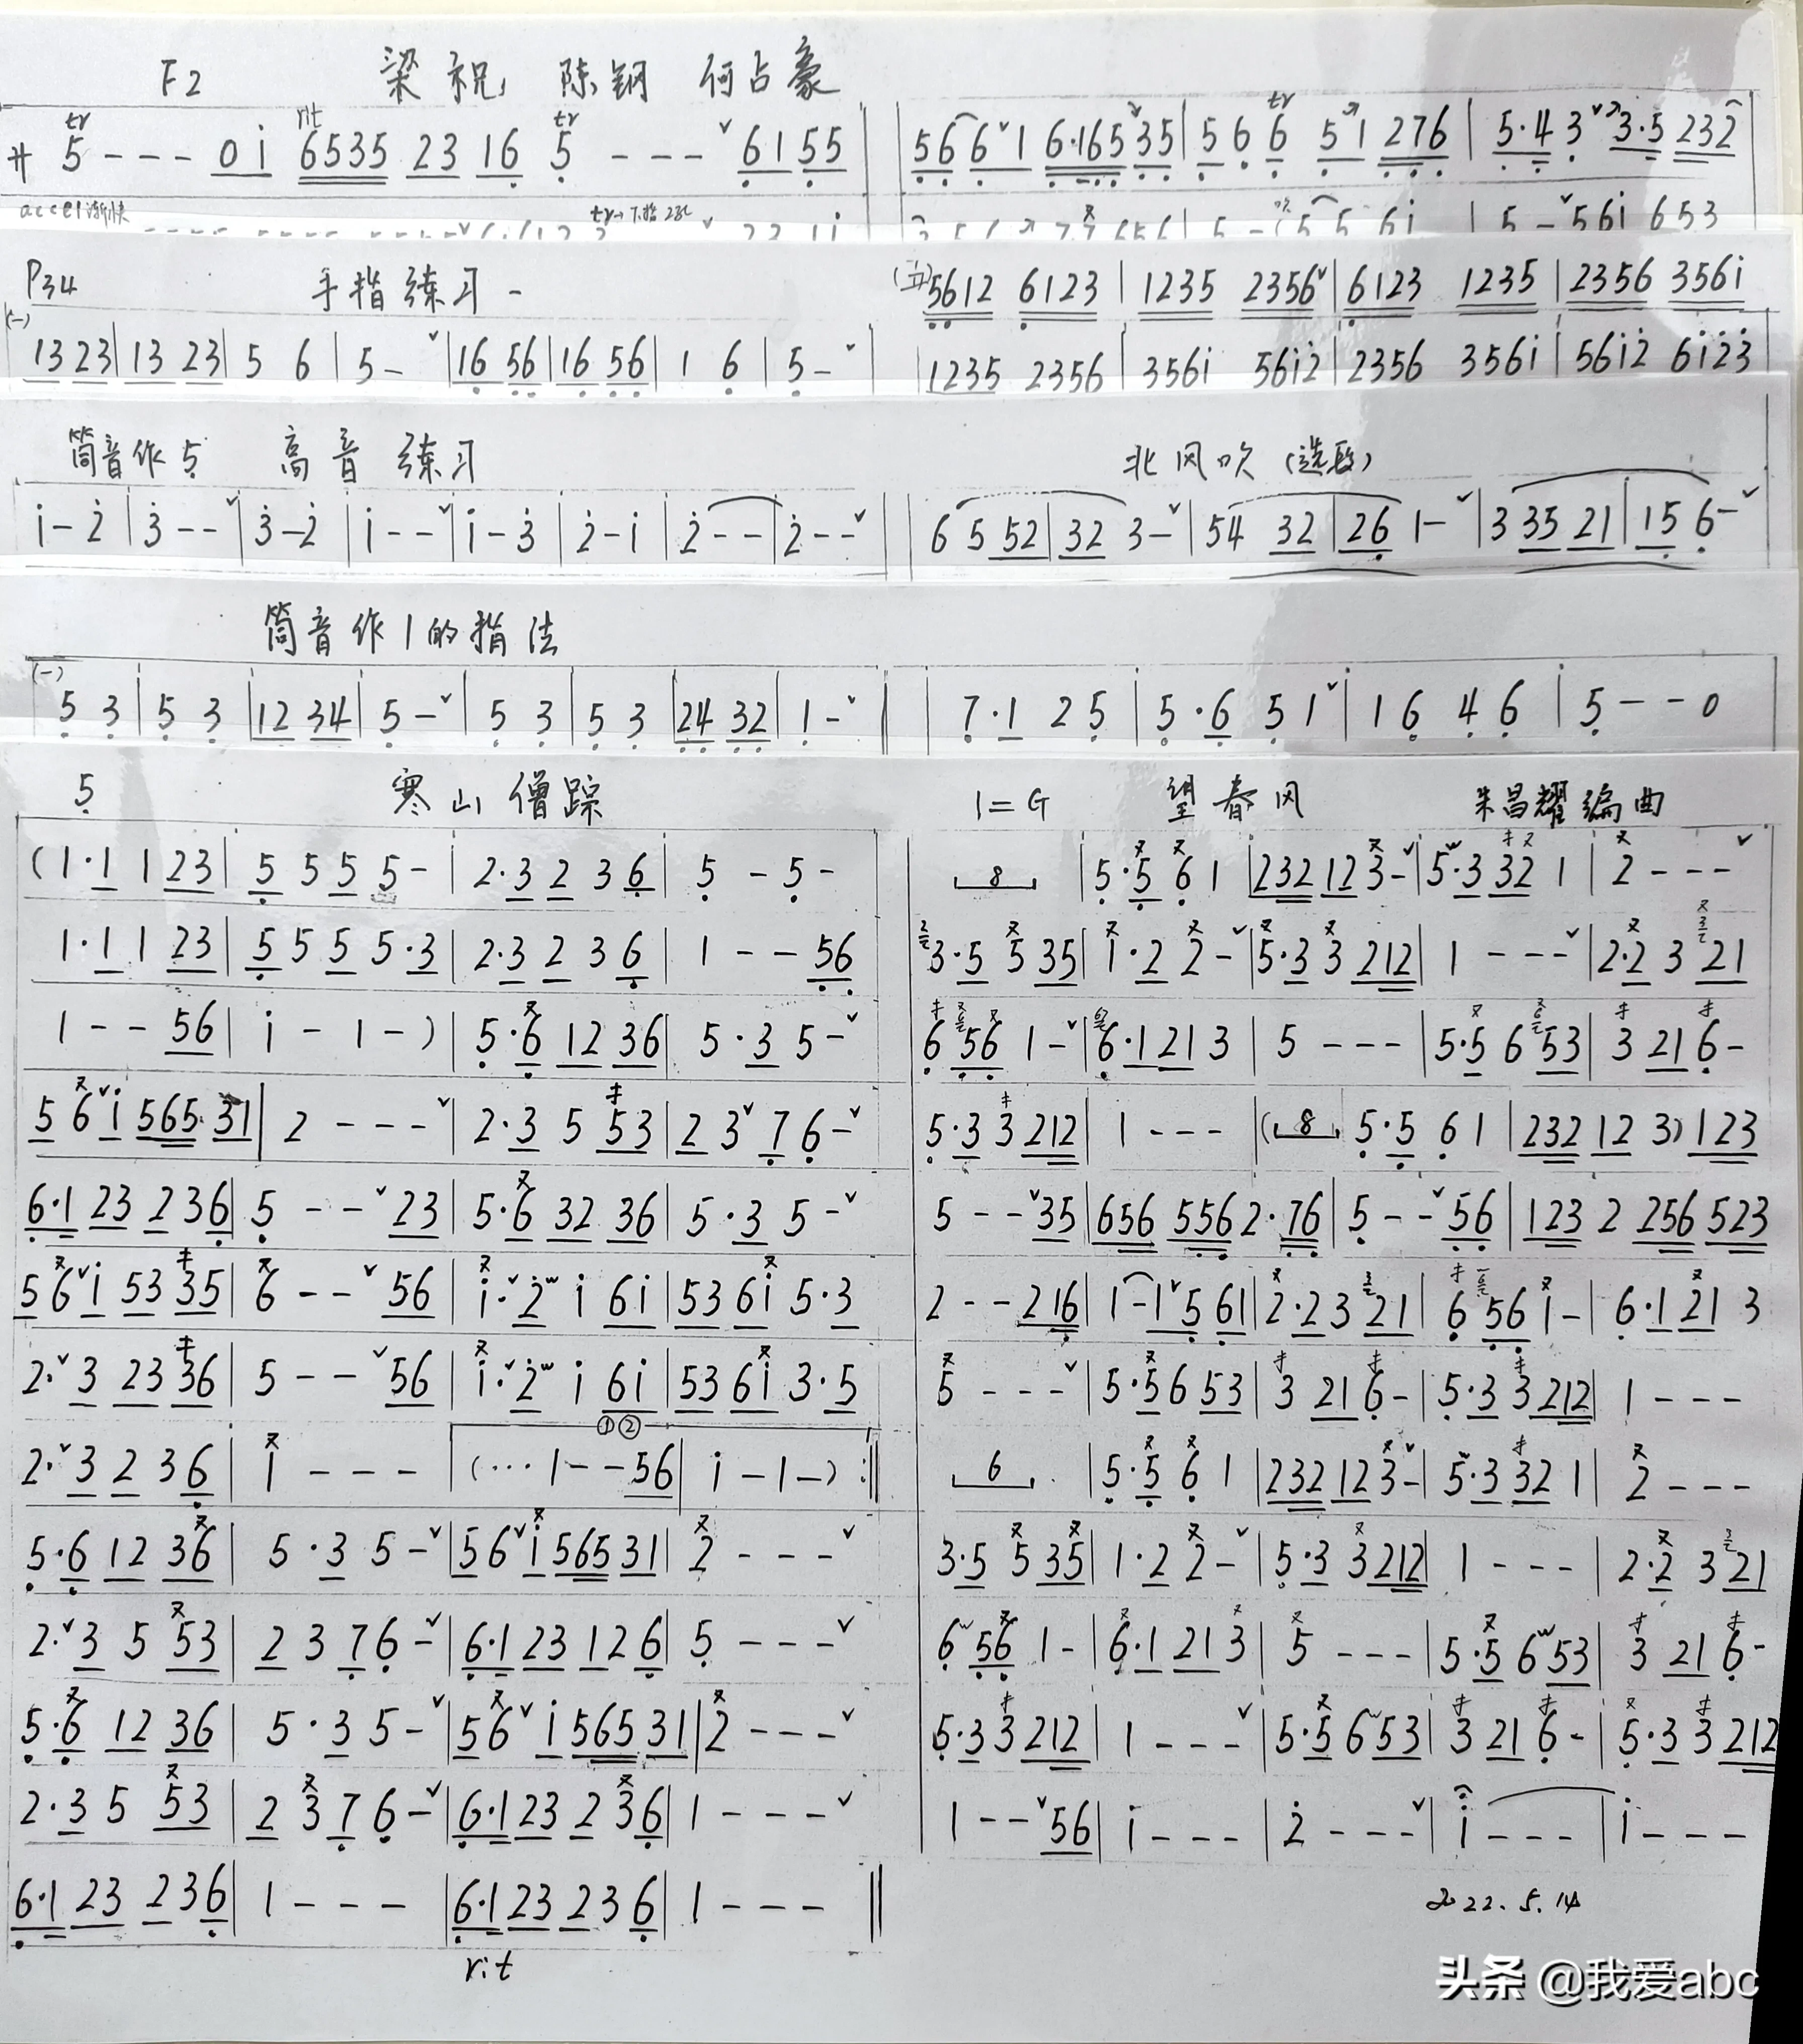 F2 梁祝 陈钢 何占豪
サ 5 - - - 0 i 6535 23 16 5 - - - ˇ 61 55 ‖
tr rit tr
56 6 ˇ 1 6·165 35 | 5 6 6 5 1 276 | 5·4 3 ˇ 3·5 232
tr
accel渐快
5 - ˇ 56i 653
P34 手指练习一
(一)
13 23 | 13 23 | 5 6 | 5 - ˇ | 16 56 | 16 56 | 1 6 | 5 - ˇ ‖
5612 6123 | 1235 2356 ˇ | 6123 1235 | 2356 356i
1235 2356 | 356i 56i2 | 2356 356i | 56i2 6i23
筒音作5 高音练习
i - 2 | 3 - - ˇ | 3 - 2 | i - - ˇ | i - 3 | 2 - i | 2 - - | 2 - - ˇ ‖
北风吹(选段)
6 5 52 | 32 3 - ˇ | 54 32 | 26 1 - ˇ | 3 35 21 | 15 6 - ˇ
筒音作1的指法
(一)
5 3 | 5 3 | 12 34 | 5 - ˇ | 5 3 | 5 3 | 24 32 | 1 - ˇ ‖
7·1 2 5 | 5·6 5 1 ˇ | 1 6 4 6 | 5 - - 0
5 寒山僧踪
(1·1 1 23 | 5 5 5 5 - | 2·3 2 3 6 | 5 - 5 -
1·1 1 23 | 5 5 5 5·3 | 2·3 2 3 6 | 1 - - 56
1 - - 56 | i - 1 -) | 5·6 12 36 | 5·3 5 - ˇ
5 6 ˇ i 565 31 | 2 - - - ˇ | 2·3 5 53 | 2 3 ˇ 7 6 - ˇ
6·1 23 2 36 | 5 - - ˇ 23 | 5·6 32 36 | 5·3 5 - ˇ
5 6 ˇ i 53 35 | 6 - - ˇ 56 | i· ˇ 2 i 6i | 53 6i 5·3
2· ˇ 3 23 36 | 5 - - ˇ 56 | i· ˇ 2 i 6i | 53 6i 3·5
①②
2· ˇ 3 2 3 6 | i - - - | (··· 1 - - 56 | i - 1 -) :‖
5·6 12 36 | 5·3 5 - ˇ | 56 ˇ i 565 31 | 2 - - - ˇ
2· ˇ 3 5 53 | 2 3 7 6 - ˇ | 6·1 23 12 6 | 5 - - - ˇ
5·6 12 36 | 5·3 5 - ˇ | 56 ˇ i 565 31 | 2 - - - ˇ
2·3 5 53 | 2 3 7 6 - ˇ | 6·1 23 2 36 | 1 - - - ˇ
6·1 23 2 36 | 1 - - - | 6·1 23 2 3 6 | 1 - - - ‖
rit
1=G 望春风 朱昌耀编曲
8 | 5·5 6 1 | 232 12 3 - ˇ | 5·3 32 1 | 2 - - - ˇ
3·5 5 35 | i·2 2 - ˇ | 5·3 3 212 | 1 - - - ˇ | 2·2 3 21
6 56 1 - ˇ | 6·1 21 3 | 5 - - - | 5·5 6 53 | 3 21 6 -
5·3 3 212 | 1 - - - | (8 5·5 6 1 | 232 12 3) 123
5 - - ˇ 35 | 656 556 2·76 | 5 - - ˇ 56 | 123 2 256 523
2 - - 216 | 1 - 1 ˇ 5 61 | 2·2 3 21 | 6 56 i - | 6·1 21 3
5 - - - ˇ | 5·5 6 53 | 3 21 6 - | 5·3 3 212 | 1 - - -
6 | 5·5 6 1 | 232 12 3 - ˇ | 5·3 32 1 | 2 - - -
3·5 5 35 | 1·2 2 - ˇ | 5·3 3 212 | 1 - - - | 2·2 3 21
6 56 1 - | 6·1 21 3 | 5 - - - | 5·5 6 53 | 3 21 6 -
5·3 3 212 | 1 - - - ˇ | 5·5 6 53 | 3 21 6 - | 5·3 3 212
1 - - ˇ 56 | i - - - | 2 - - - ˇ | i - - - | i - - -
2022.5.14
头条 @我爱abc